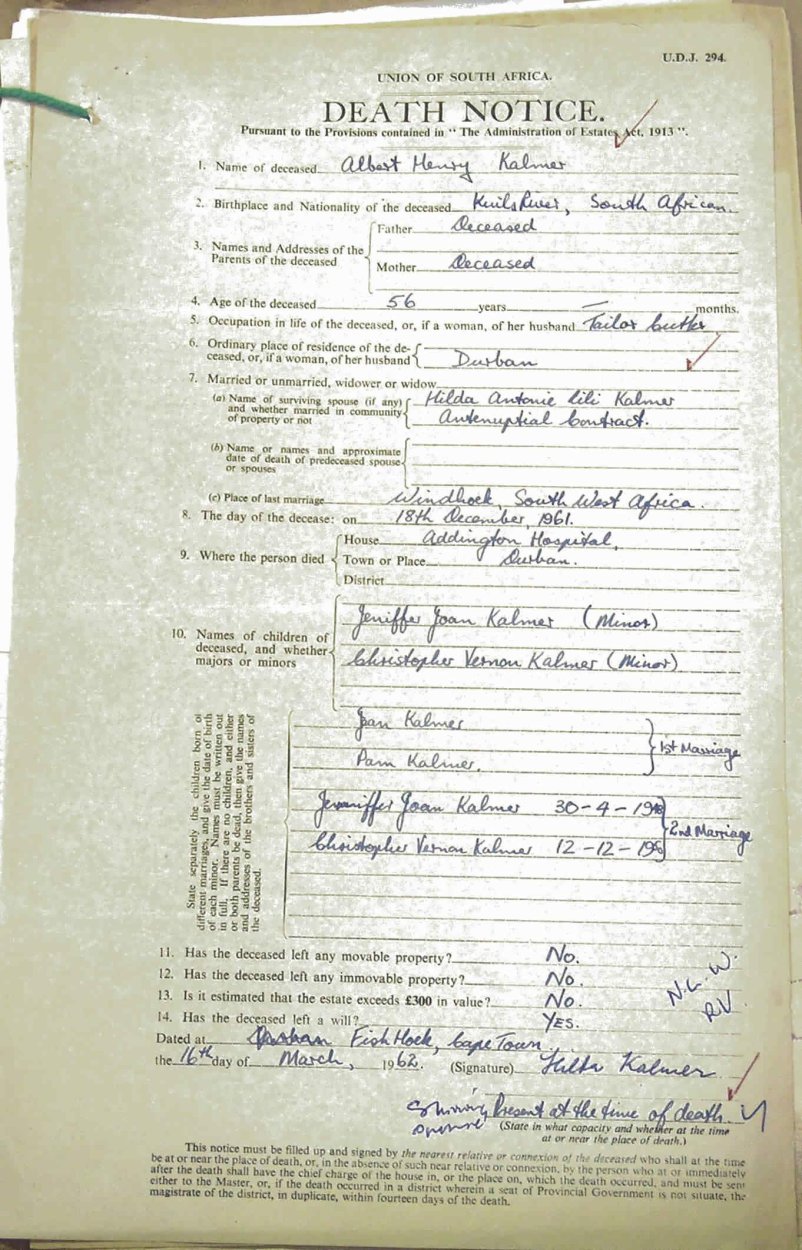 U.D.J. 294.
UNION OF SOUTH AFRICA.
DEATH NOTICE.
Pursuant to the Provisions contained in "The Administration of Estates Act, 1913".
1. Name of deceased Albert Henry Kalmer
2. Birthplace and Nationality of the deceased Kuils River, South African.
3. Names and Addresses of the Parents of the deceased
Father Deceased
Mother Deceased
4. Age of the deceased 56 years — months.
5. Occupation in life of the deceased, or, if a woman, of her husband Tailor Cutter
6. Ordinary place of residence of the de-
ceased, or, if a woman, of her husband Durban
7. Married or unmarried, widower or widow
(a) Name of surviving spouse (if any) Hilda Antonie Lili Kalmer
and whether married in community
of property or not Antenuptial Contract.
(b) Name or names and approximate
date of death of predeceased spouse
or spouses
(c) Place of last marriage Windhoek, South West Africa.
8. The day of the decease: on 18th December, 1961.
9. Where the person died
House Addington Hospital,
Town or Place Durban.
District
10. Names of children of
deceased, and whether
majors or minors
Jeniffer Joan Kalmer (Minor)
Christopher Vernon Kalmer (Minor)
State separately the children born of
different marriages, and give the date of birth
of each minor. Names must be written out
in full. If there are no children, and either
or both parents be dead, then give the names
and addresses of the brothers and sisters of
the deceased.
Joan Kalmer
Pam Kalmer.
1st Marriage
Jeniffer Joan Kalmer 30-4-19
Christopher Vernon Kalmer 12-12-19
2nd Marriage
11. Has the deceased left any movable property? No.
12. Has the deceased left any immovable property? No.
13. Is it estimated that the estate exceeds £300 in value? No.
14. Has the deceased left a will? YES.
Dated at Durban Fish Hoek, Cape Town
the 16th day of March, 1962. (Signature) Hilda Kalmer
Surviving spouse
Present at the time of death.
(State in what capacity and whether at the time
at or near the place of death.)
This notice must be filled up and signed by the nearest relative or connexion of the deceased who shall at the time
be at or near the place of death, or, in the absence of such near relative or connexion, by the person who at or immediately
after the death shall have the chief charge of the house in, or the place on, which the death occurred, and must be sent
either to the Master, or, if the death occurred in a district wherein a seat of Provincial Government is not situate, the
magistrate of the district, in duplicate, within fourteen days of the death.